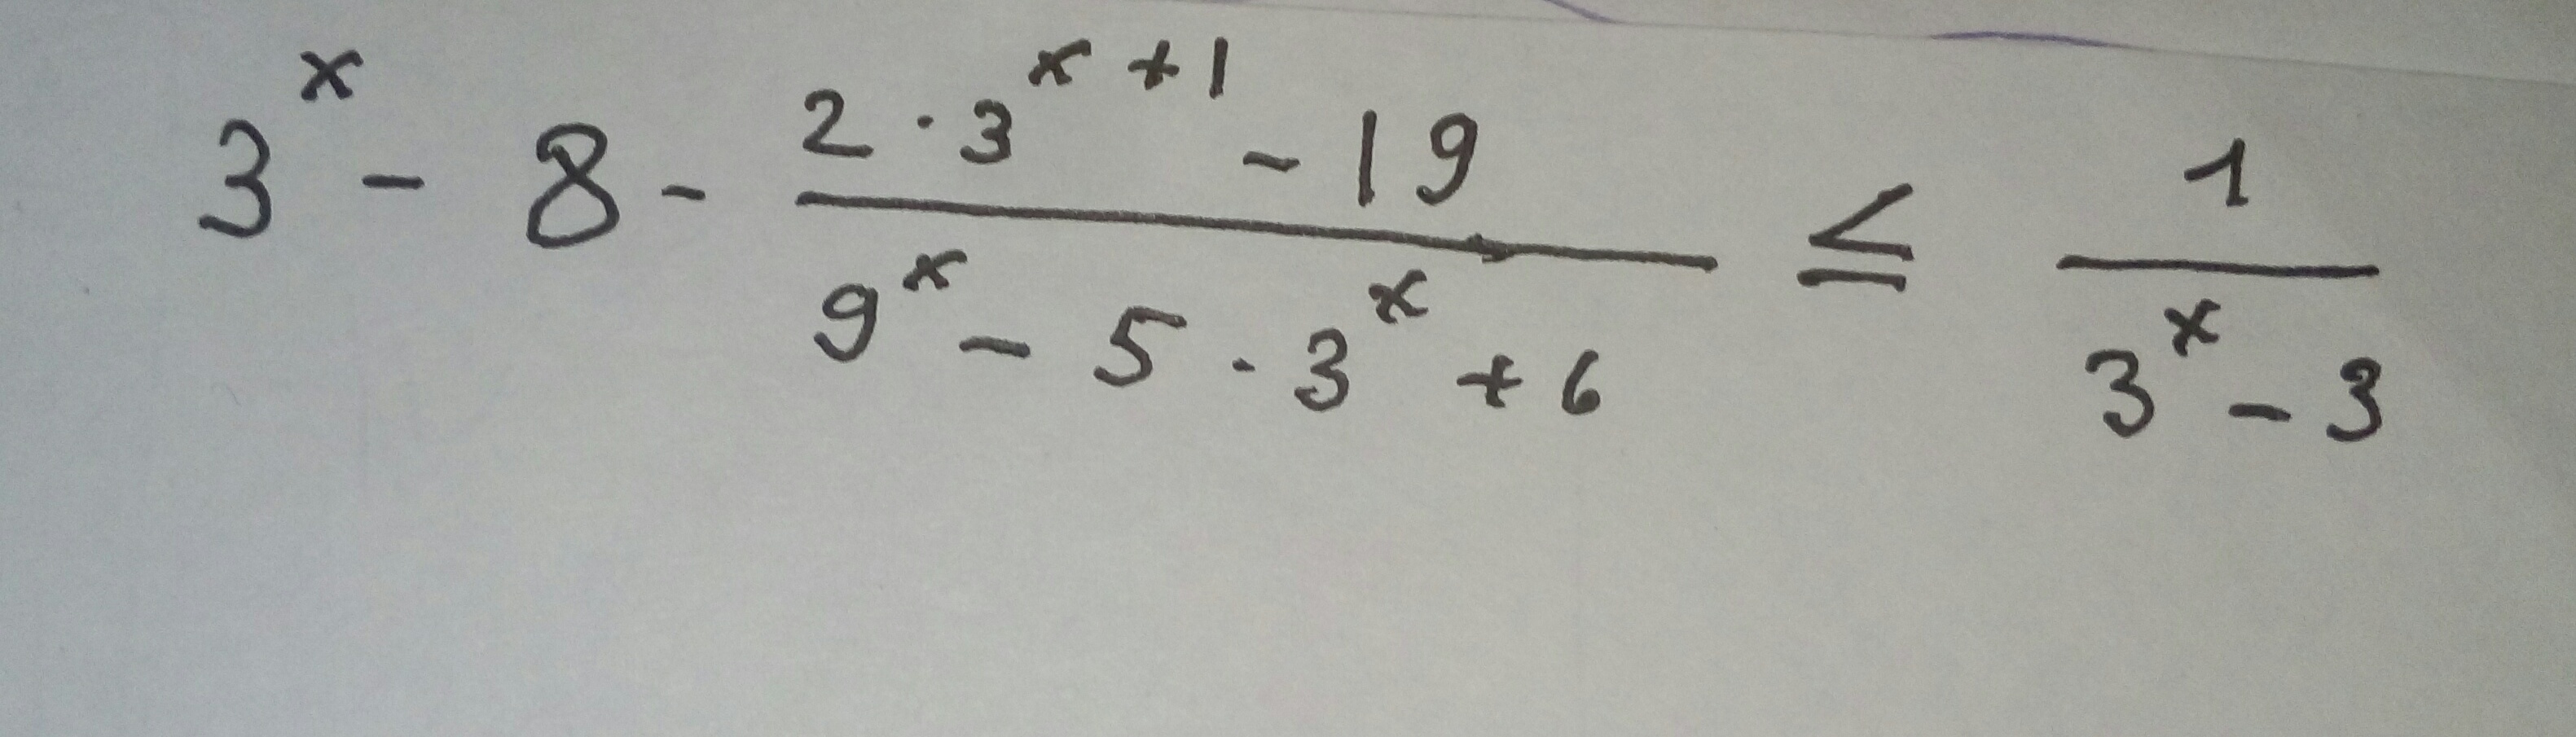 3^x - 8 - \frac{2 \cdot 3^{x+1} - 19}{9^x - 5 \cdot 3^x + 6} ≤ \frac{1}{3^x - 3}